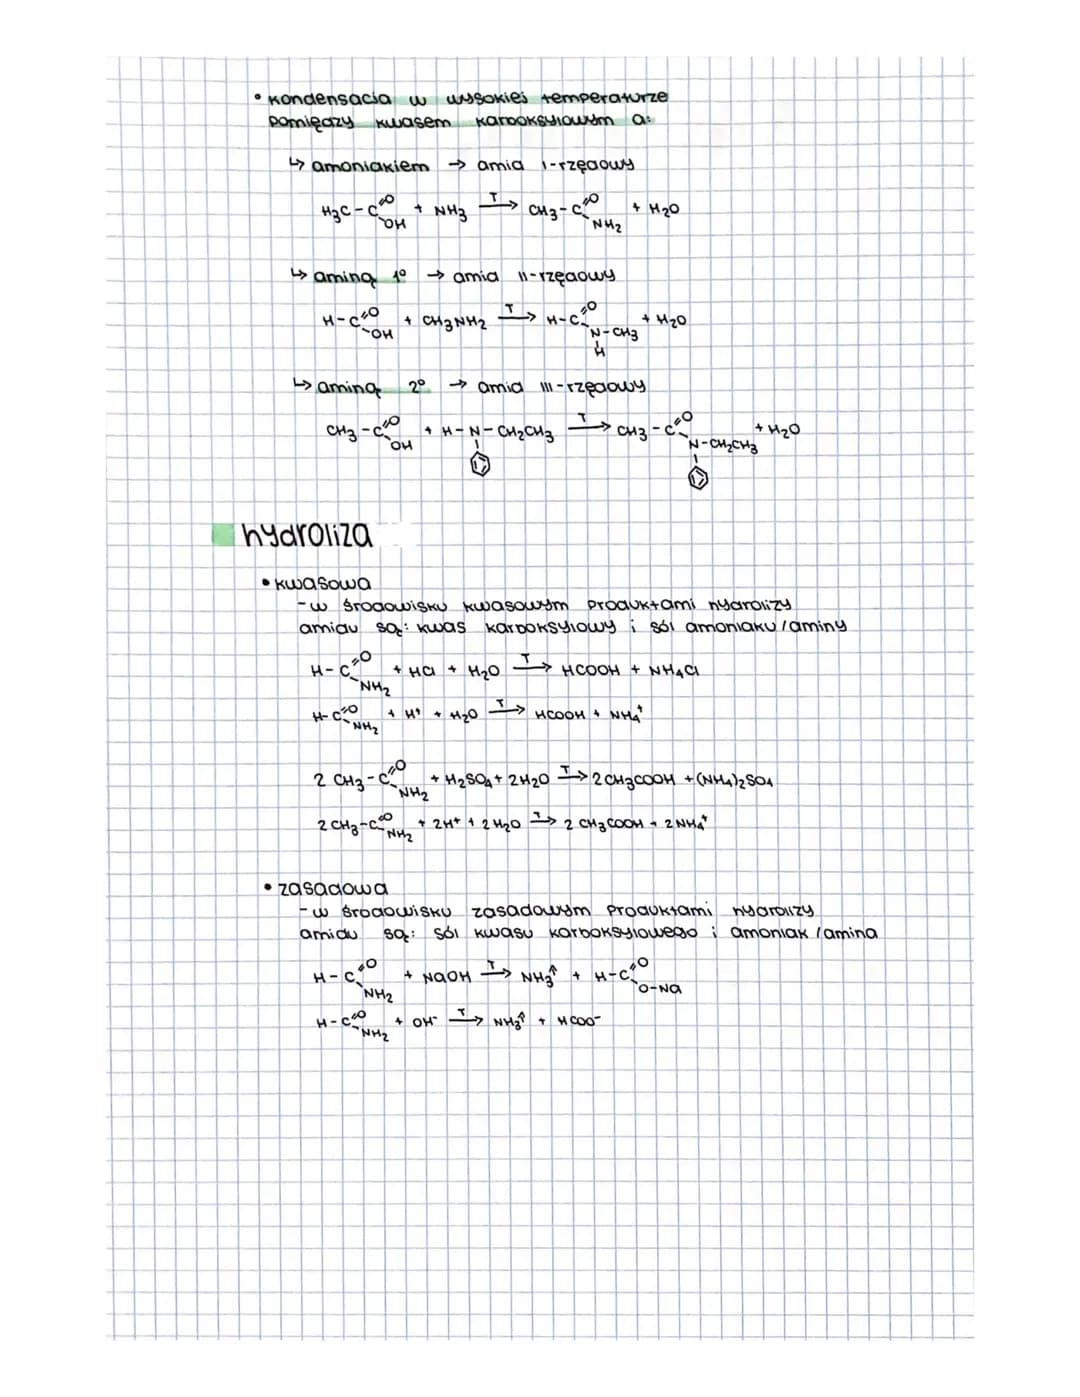 • kondensacja w wysokiej temperaturze
pomiędzy kwasem karboksylowym a:
↳ amoniakiem → amid I-rzędowy
H₃C-C(=O)OH + NH₃ —T→ CH₃-C(=O)NH₂ + H₂O
↳ aminą 1° → amid II-rzędowy
H-C(=O)OH + CH₃NH₂ —T→ H-C(=O)N(H)-CH₃ + H₂O
↳ aminą 2° → amid III-rzędowy
CH₃-C(=O)OH + H-N-CH₂CH₃ —T→ CH₃-C(=O)N-CH₂CH₃ + H₂O
hydroliza
• kwasowa
-w środowisku kwasowym produktami hydrolizy
amidu są: kwas karboksylowy i sól amoniaku/aminy
H-C(=O)NH₂ + HCl + H₂O —T→ HCOOH + NH₄Cl
H-C(=O)NH₂ + H⁺ + H₂O —T→ HCOOH + NH₄⁺
2 CH₃-C(=O)NH₂ + H₂SO₄ + 2H₂O —T→ 2CH₃COOH + (NH₄)₂SO₄
2 CH₃-C(=O)NH₂ + 2H⁺ + 2H₂O —T→ 2 CH₃COOH + 2NH₄⁺
• zasadowa
-w środowisku zasadowym produktami hydrolizy
amidu są: sól kwasu karboksylowego i amoniak/amina
H-C(=O)NH₂ + NaOH —T→ NH₃↑ + H-C(=O)O-Na
H-C(=O)NH₂ + OH⁻ —T→ NH₃↑ + HCOO⁻